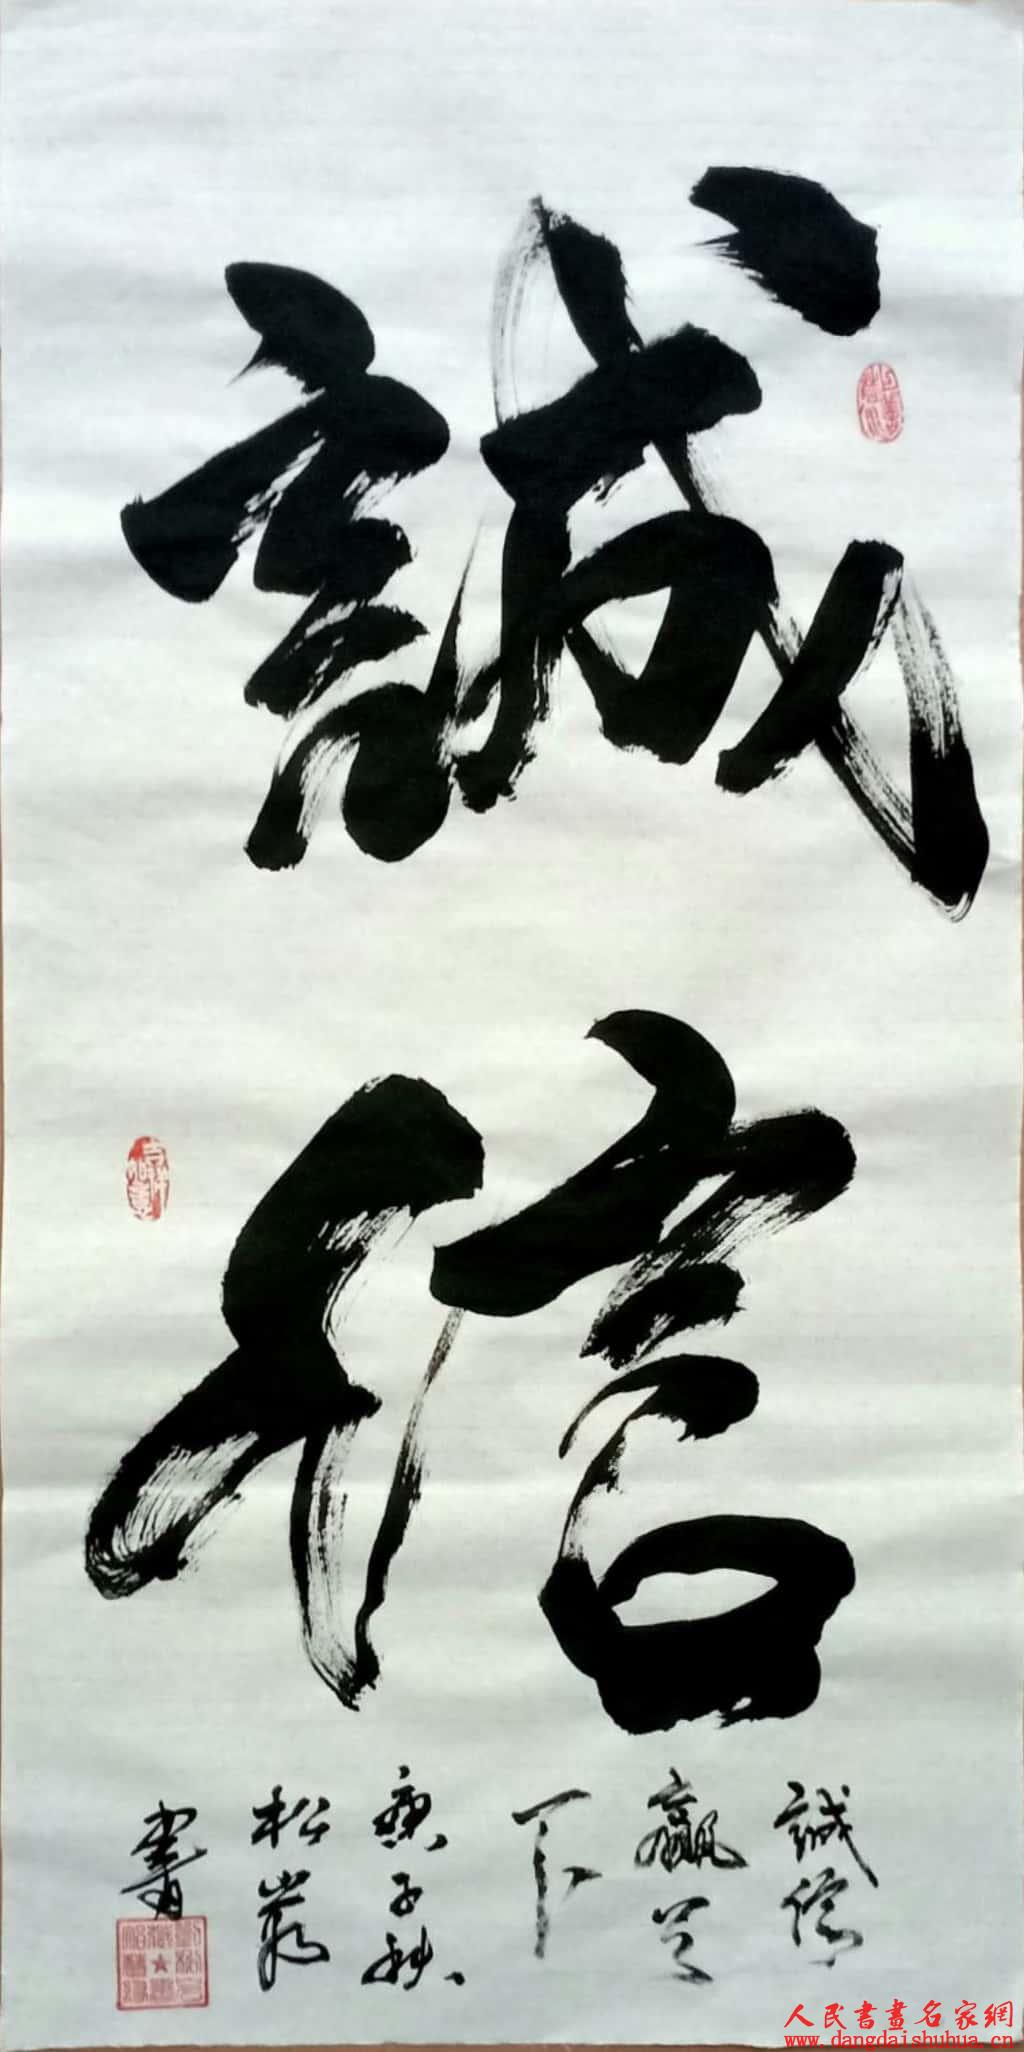 誠
信
誠信
贏天
下
庚子秋
松巖
書
人民書畫名家網
www.dangdaishuhua.cn